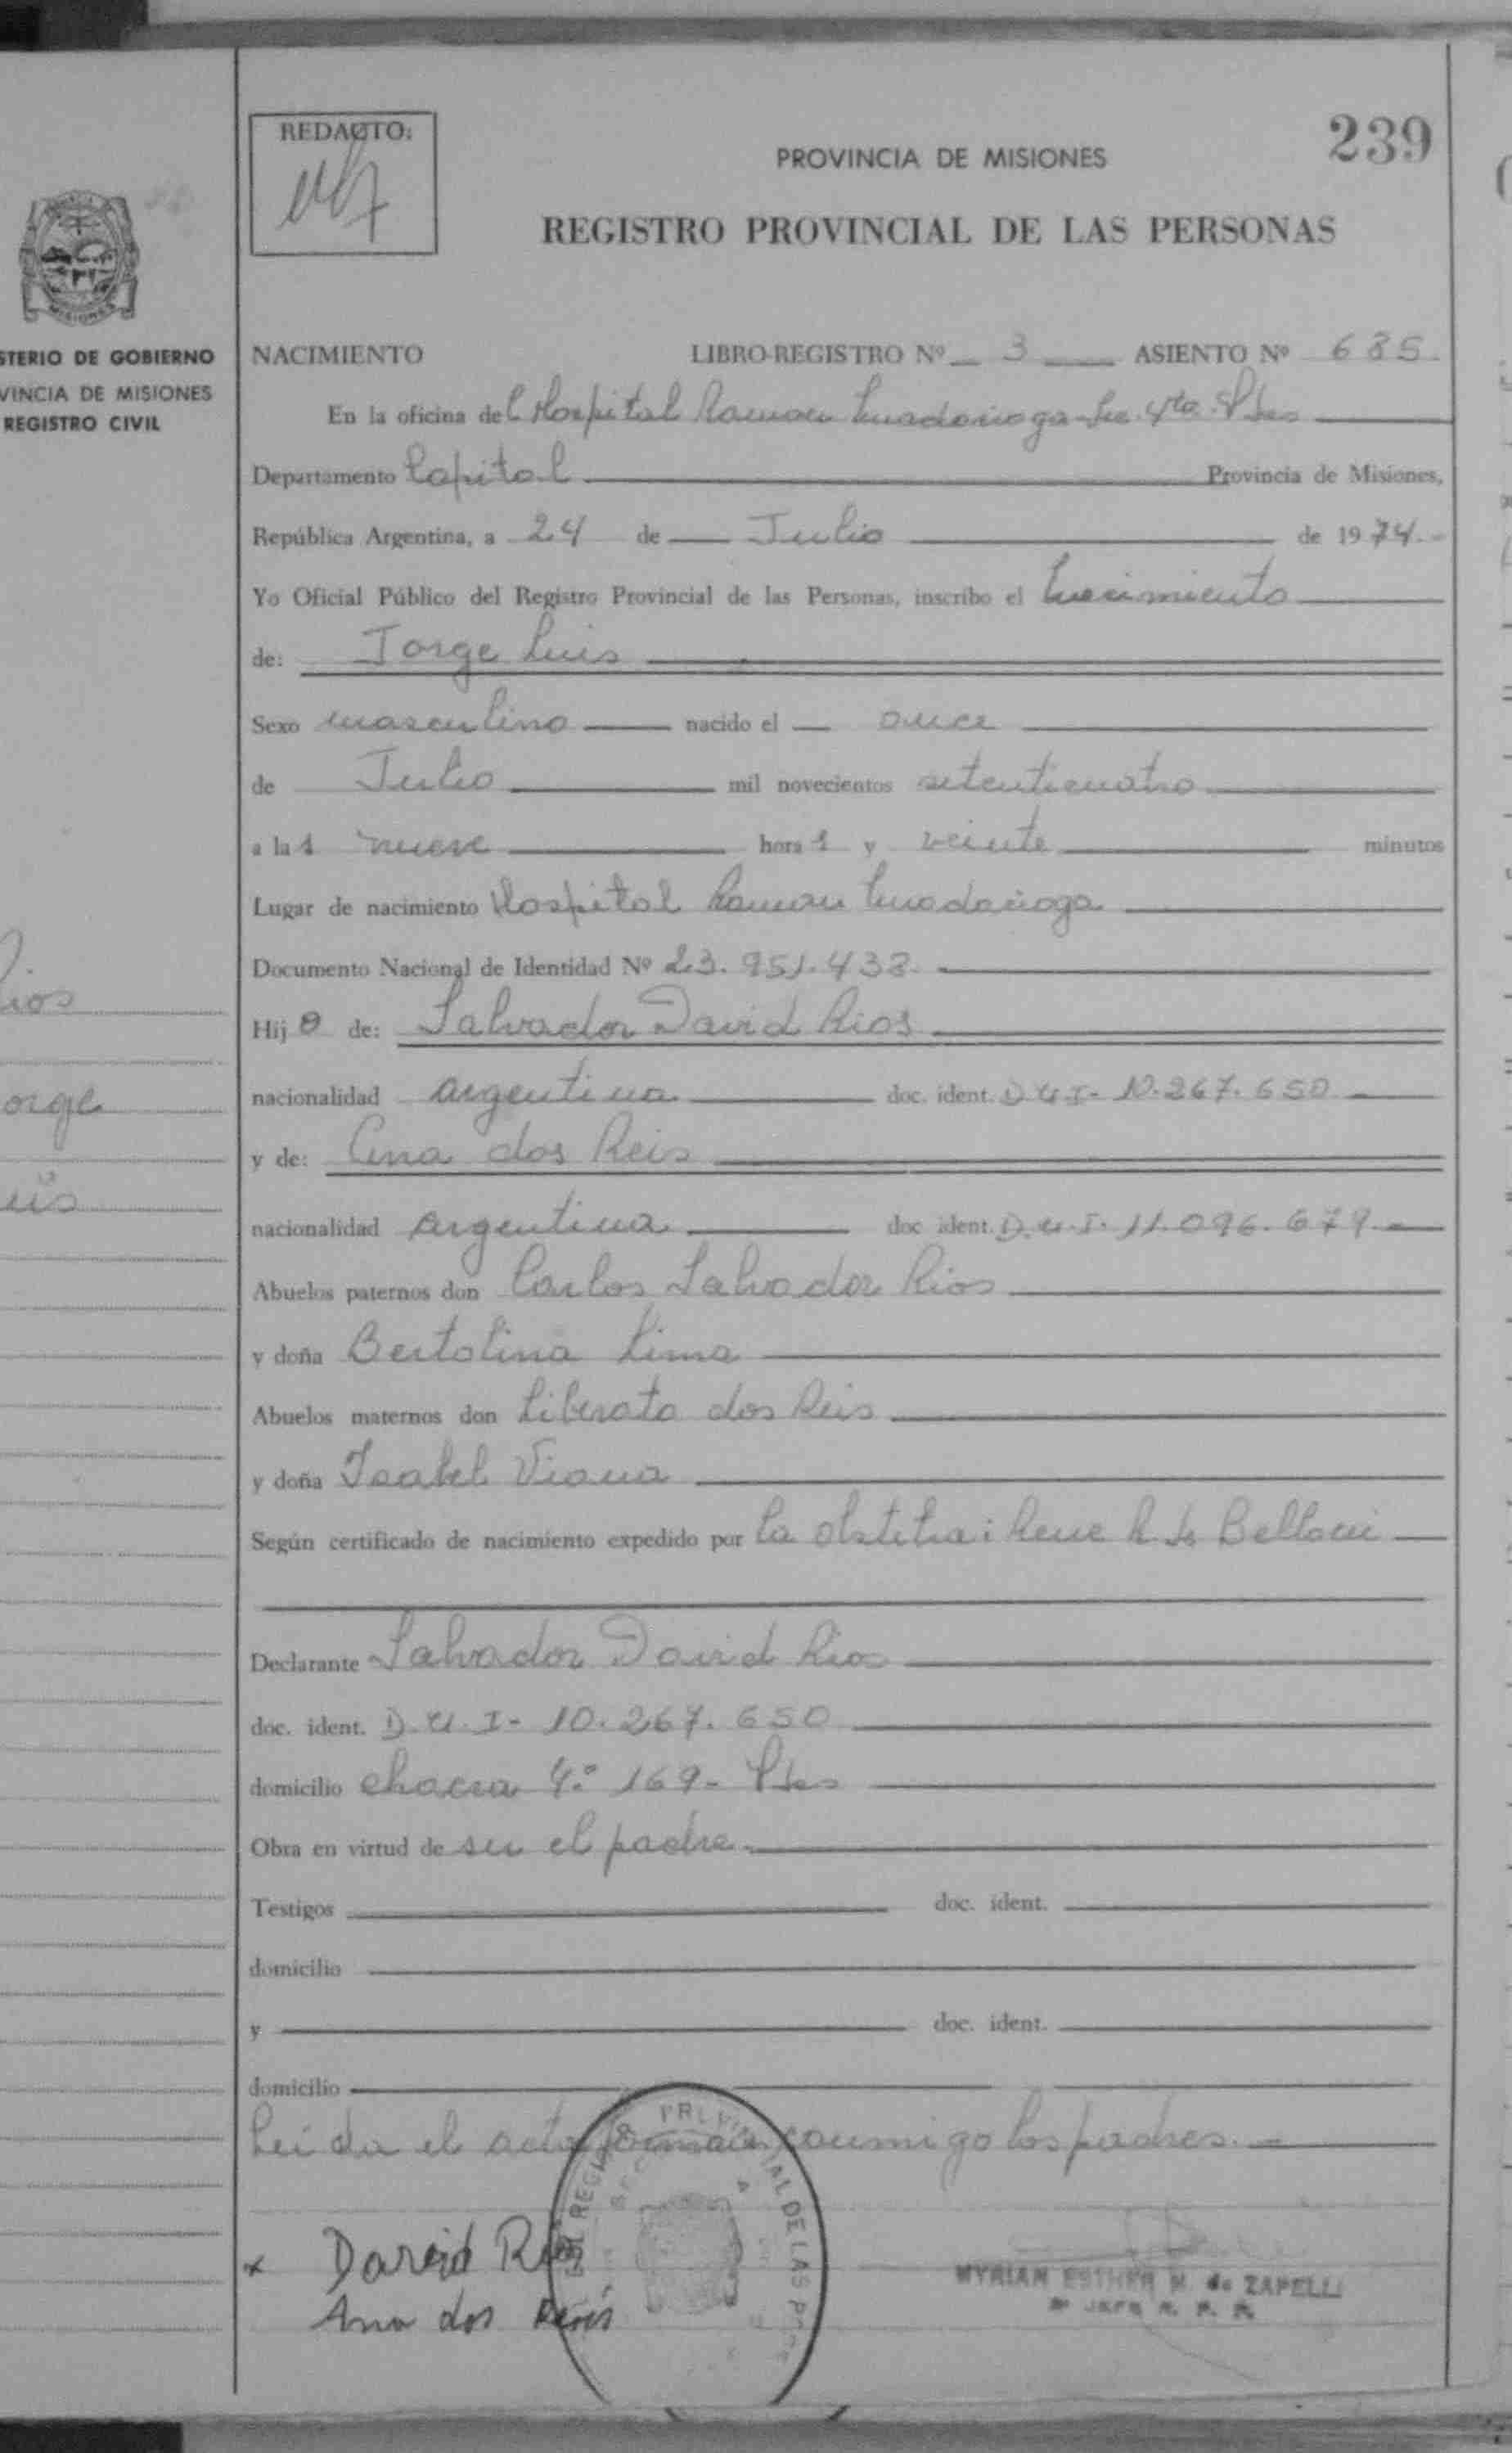 REDACTO:
239
PROVINCIA DE MISIONES
REGISTRO PROVINCIAL DE LAS PERSONAS
MISIONES
STERIO DE GOBIERNO
VINCIA DE MISIONES
REGISTRO CIVIL
NACIMIENTO LIBRO-REGISTRO Nº 3 ASIENTO Nº 685
En la oficina del Hospital Ramon Madariaga
Departamento Capital Provincia de Misiones,
República Argentina, a 24 de Julio de 1974.-
Yo Oficial Público del Registro Provincial de las Personas, inscribo el nacimiento
de: Jorge Luis
Sexo masculino nacido el once
de Julio mil novecientos setenticuatro
a las nueve horas y veinte minutos
Lugar de nacimiento Hospital Ramon Madariaga
Documento Nacional de Identidad Nº 23.951.438
Rios
Hijo de: Salvador David Rios
orge
nacionalidad argentina doc. ident. D U I- 10.267.650
y de: Ana dos Reis
uis
nacionalidad argentina doc. ident. D.U.I. 11.096.679.-
Abuelos paternos don Carlos Salvador Rios
y doña Bertolina Lima
Abuelos maternos don Liberato dos Reis
y doña Isabel Viana
Según certificado de nacimiento expedido por la obstetra: Rene R de
Declarante Salvador David Rios
doc. ident. D.U.I- 10.267.650
domicilio chacra Nº 169- Pdas
Obra en virtud de ser el padre.
Testigos doc. ident.
domicilio
y doc. ident.
domicilio
Leida el acta firman conmigo los padres.-
REGISTRO PROVINCIAL DE LAS PERS
x David Rios
Ana dos Reis
MYRIAN ESTHER M. de ZAPELLI